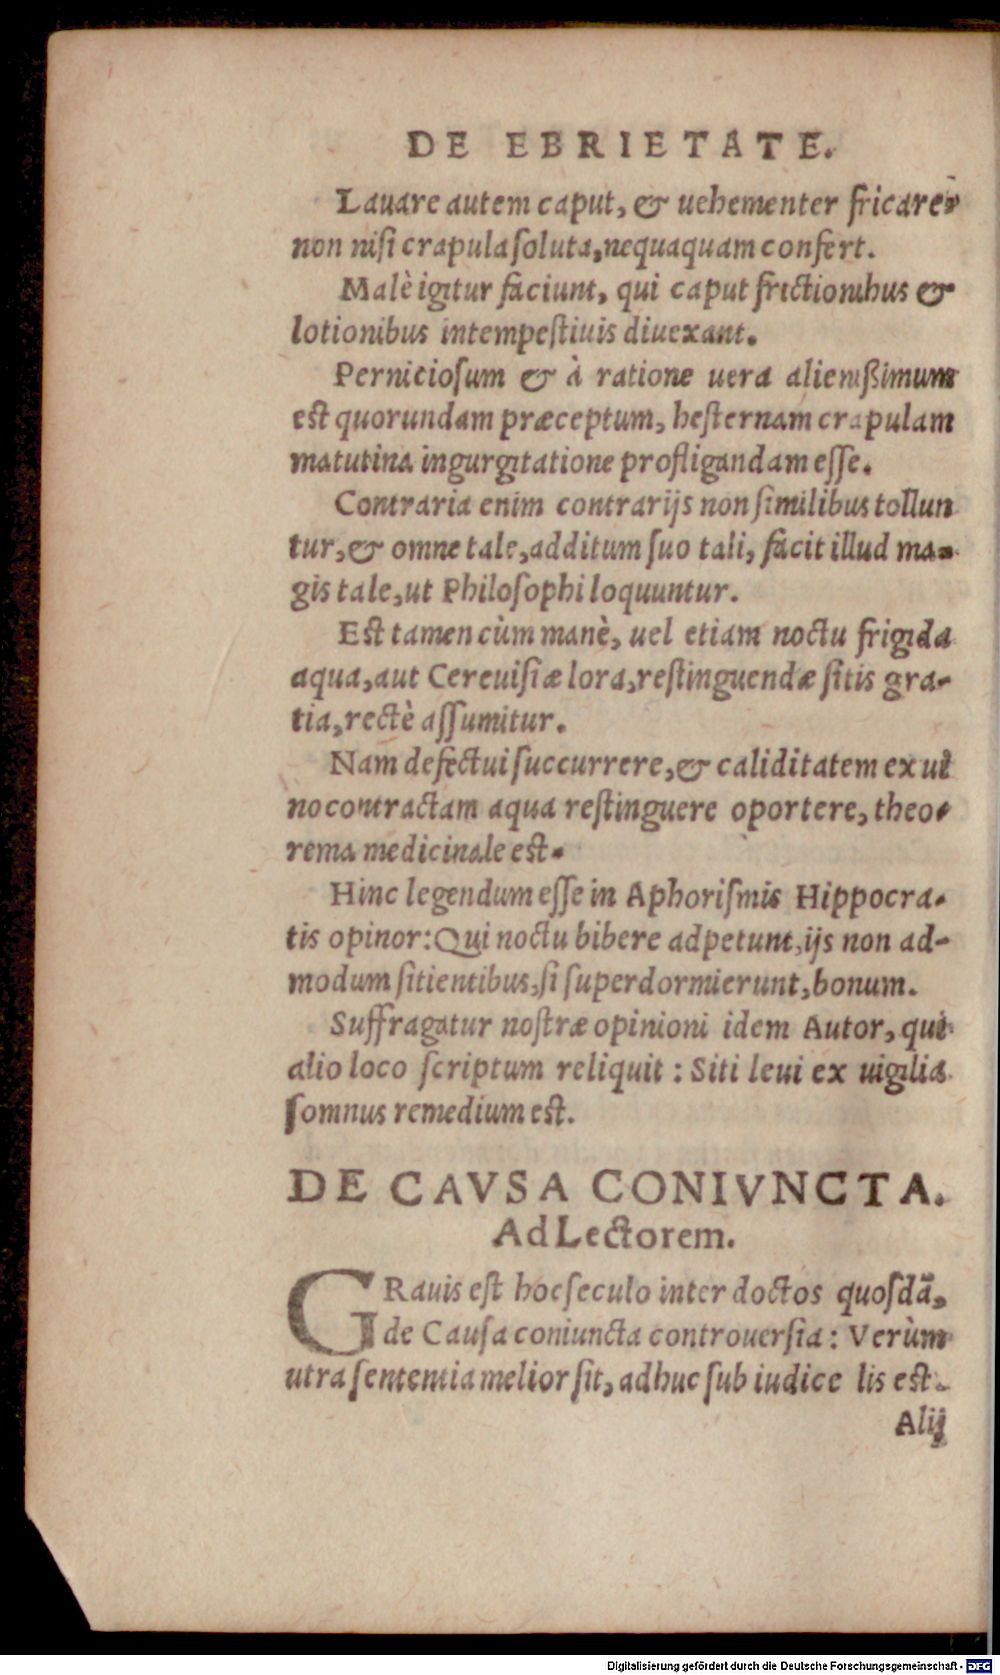 DE EBRIETATE.
Lauare autem caput, & uehementer fricare,
non nisi crapula soluta, nequaquam confert.
Malè igitur faciunt, qui caput frictionibus &
lotionibus intempestiuis diuexant.
Perniciosum & à ratione uera alienißimum
est quorundam præceptum, hesternam crapulam
matutina ingurgitatione profligandam esse.
Contraria enim contrarijs non similibus tollun
tur, & omne tale, additum suo tali, facit illud ma-
gis tale, ut Philosophi loquuntur.
Est tamen cùm manè, uel etiam noctu frigida
aqua, aut Cereuisiæ lora, restinguendæ sitis gra-
tia, rectè assumitur.
Nam defectui succurrere, & caliditatem ex ui
no contractam aqua restinguere oportere, theo-
rema medicinale est.
Hinc legendum esse in Aphorismis Hippocra-
tis opinor: Qui noctu bibere adpetunt, ijs non ad-
modum sitientibus, si superdormierunt, bonum.
Suffragatur nostræ opinioni idem Autor, qui
alio loco scriptum reliquit: Siti leui ex uigilia
somnus remedium est.
DE CAVSA CONIVNCTA.
Ad Lectorem.
GRauis est hoc seculo inter doctos quosdã,
de Causa coniuncta controuersia: Verùm
utra sententia melior sit, adhuc sub iudice lis est.
Alij
Digitalisierung gefördert durch die Deutsche Forschungsgemeinschaft - DFG